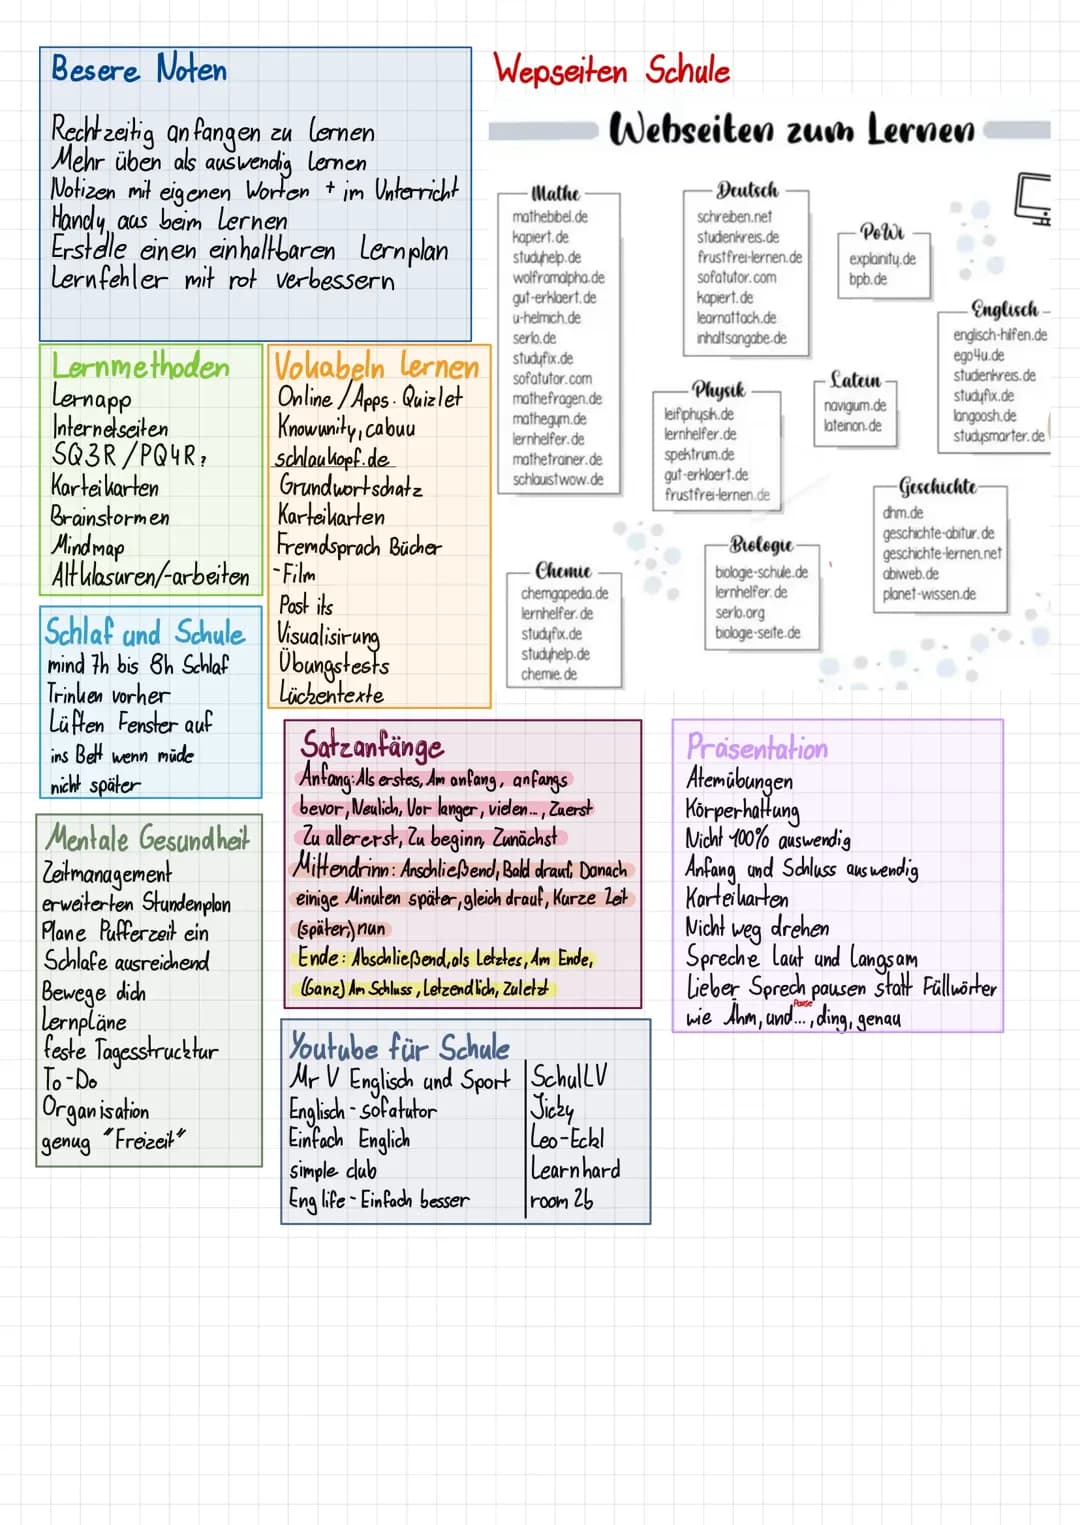 Besere Noten
Rechtzeitig anfangen zu lernen
Mehr üben als auswendig lernen
Notizen mit eigenen Worten + im Unterricht
Handy aus beim Lernen
Erstelle einen einhaltbaren Lernplan
Lernfehler mit rot verbessern
Wepseiten Schule
Webseiten zum Lernen
Mathe
mathebibel.de
kapiert.de
studyhelp.de
wolframalpha.de
gut-erklaert.de
u-helmich.de
serlo.de
studyfix.de
sofatutor.com
mathefragen.de
mathegym.de
lernhelfer.de
mathetrainer.de
schlauistwow.de
Deutsch
schreiben.net
studienkreis.de
frustfrei-lernen.de
sofatutor.com
kapiert.de
learnattack.de
inhaltsangabe.de
PoWi
explainity.de
bpb.de
Englisch
englisch-hilfen.de
ego4u.de
studienkreis.de
studyfix.de
langoosh.de
studysmarter.de
Physik
leifiphysik.de
lernhelfer.de
spektrum.de
gut-erklaert.de
frustfrei-lernen.de
Latein
navigium.de
lateinon.de
Geschichte
dhm.de
geschichte-abitur.de
geschichte-lernen.net
abiweb.de
planet-wissen.de
Biologie
biologie-schule.de
lernhelfer.de
serlo.org
biologie-seite.de
Chemie
chemgapedia.de
lernhelfer.de
studyfix.de
studyhelp.de
chemie.de
Lernmethoden
Lernapp
Internetseiten
SQ3R/PQ4R?
Karteikarten
Brainstormen
Mindmap
Altklasuren/-arbeiten
Vokabeln lernen
Online/Apps. Quizlet
Knowunity, cabuu
schlaukopf.de
Grundwortschatz
Karteikarten
Fremdsprach Bücher
-Film
Post its
Visualisirung
Übungstests
Lückentexte
Schlaf und Schule
mind 7h bis 8h Schlaf
Trinken vorher
Lüften Fenster auf
ins Bett wenn müde
nicht später
Mentale Gesundheit
Zeitmanagement
erweiterten Stundenplan
Plane Pufferzeit ein
Schlafe ausreichend
Bewege dich
Lernpläne
feste Tagesstrucktur
To-Do
Organisation
genug "Freizeit"
Satzanfänge
Anfang: Als erstes, Am anfang, anfangs
bevor, Neulich, Vor langer, vielen..., Zuerst
Zu allererst, Zu beginn, Zunächst
Mittendrinn: Anschließend, Bald drauf, Danach
einige Minuten später, gleich drauf, Kurze Zeit
(später,) nun
Ende: Abschließend, als Letztes, Am Ende,
(Ganz) Am Schluss, Letzendlich, Zuletzt
Präsentation
Atemübungen
Körperhaltung
Nicht 100% auswendig
Anfang und Schluss auswendig
Karteikarten
Nicht weg drehen
Spreche laut und langsam
Lieber Sprech pausen statt Füllwörter
Pause
wie Ähm, und..., ding, genau
Youtube für Schule
Mr V Englisch und Sport
Englisch - sofatutor
Einfach Englich
simple club
Eng life - Einfach besser
SchulLV
Jicky
Leo-Eckl
Learnhard
room 26